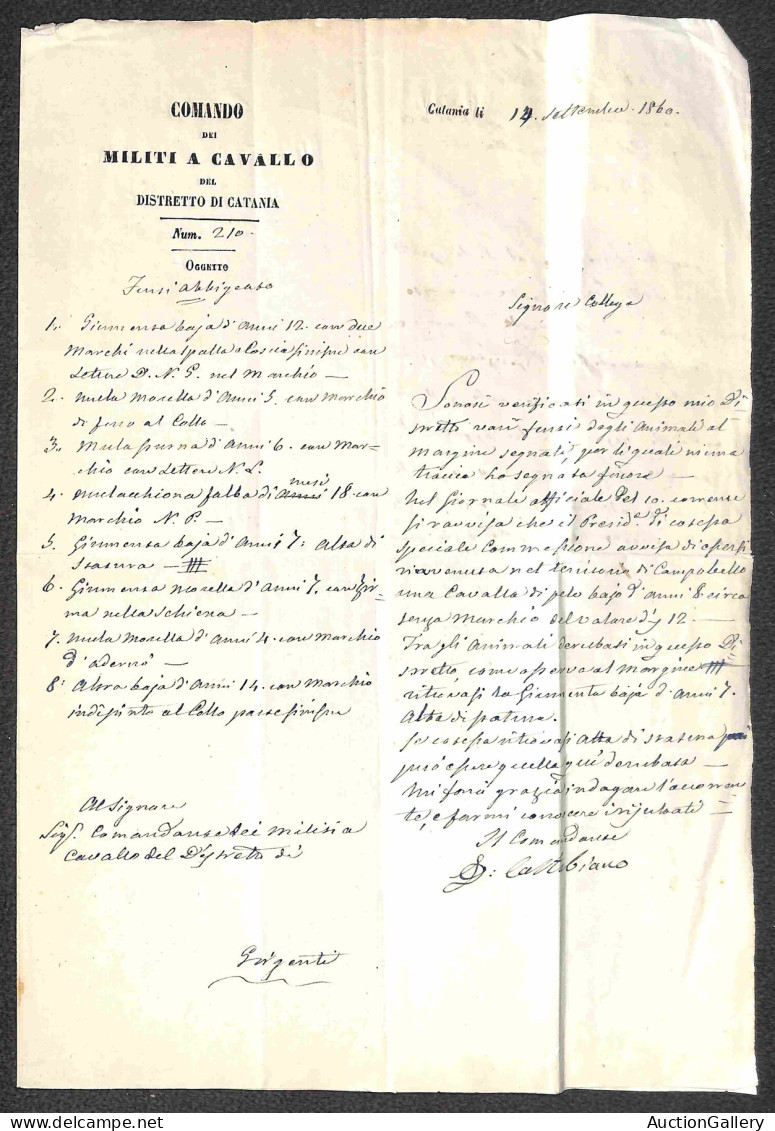 COMANDO
DEI
MILITI A CAVALLO
DEL
DISTRETTO DI CATANIA
Num. 210.
OGGETTO
Furti abbigeato
1. Giumenta baja d'Anni 12. con due
Marchi nella spalla e Coscia sinistra con
Lettere D. N. G. nel Marchio —
2. Mula Morella d'Anni 5. con Marchio
di ferro al Collo —
3. Mula d'Anni 6. con Mar-
chio con Lettere N. L.
4. Mulacchiona falba di mesi 18 con
Marchio N. P. —
5. Giumenta baja d'Anni 7: Alta di
Statura —
6. Giumenta Morella d'Anni 7. con
nella Schiena —
7. Mula Morella d'Anni 4. con Marchio
d'Adernò —
8: Altra baja d'Anni 14. con Marchio
indistinto al Collo parte sinistra
Al Signore
Sigr. Comandante dei Militi a
Cavallo del Distretto di
Girgenti
Catania li 14. Settembre 1860.
Signore Collega
Sonosi verificati in questo mio Di-
stretto varî furti degli Animali al
margine segnati, per li quali niuna
traccia ho segnata finora
Nel Giornale officiale del 10. corrente
si ravvisa che il Preside. di cotesta
speciale Commessione avvisa di essersi
rinvenuta nel territorio di Campobello
una Cavalla di pelo bajo d'anni 8. circa
senza Marchio del valore di 12. —
Tra gli Animali derubati in questo Di-
stretto, come osserva al Margine
ritrovasi la Giumenta baja d'Anni 7.
Alta di statura.
Se cotesta ritrovasi Alta di statura
può essere quella quì derubata
Mi farà grazia indagare l'occorren-
te, e farmi conoscere i risultati —
Il Comandante
AuctionGallery